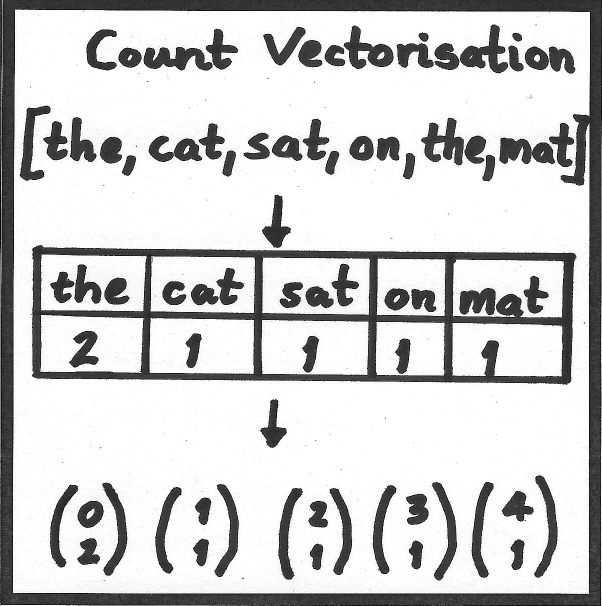 Count Vectorisation
[the, cat, sat, on, the, mat]
↓
the cat sat on mat
2 1 1 1 1
↓
(0 2) (1 1) (2 1) (3 1) (4 1)